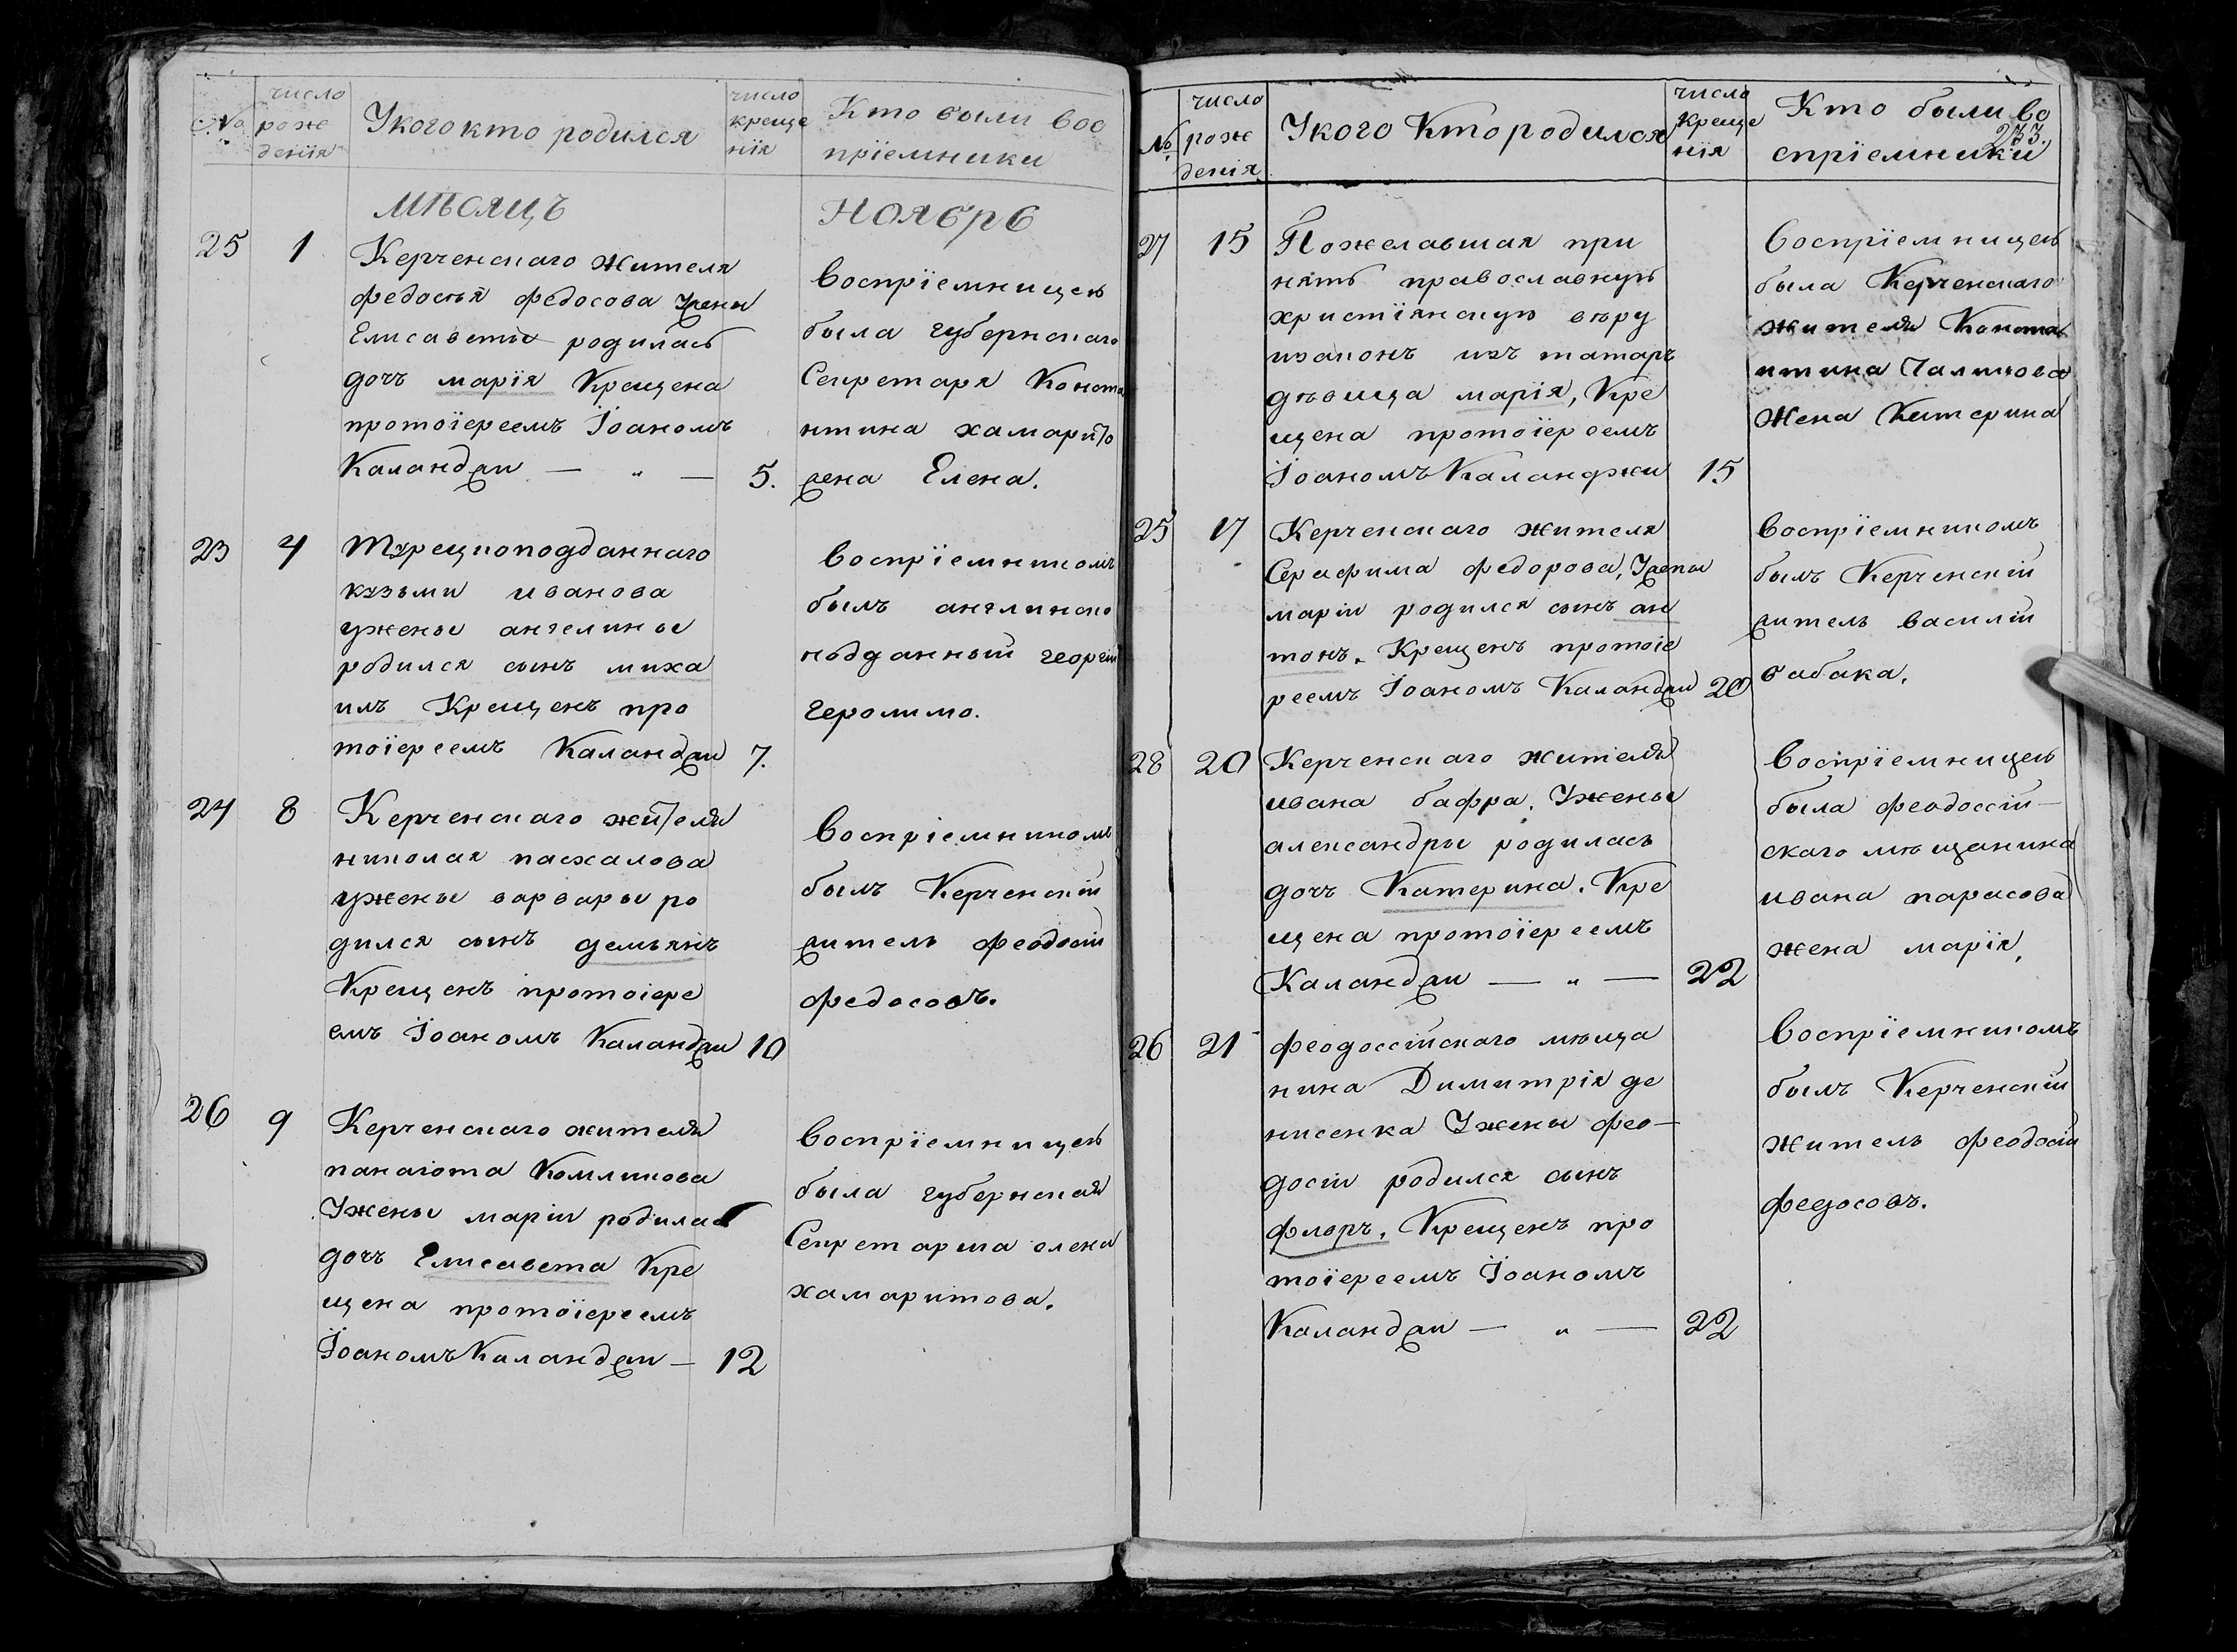 № число рож денiя Укого кто родился число креще нiя Кто были вос прiемники
мѣсяцъ Ноябрь
25 1 Керченскаго жителя
федосѣя федосова Ужены
Елисаветы родилась
дочь марiя Крещена
протоiереемъ Iоаномъ
Каланджи — „ — 5.
восприемницею
была губернскаго
Секретаря Конста
нтина хамарито
жена Елена.
23 4 Турецкоподданнаго
кузьми иванова
ужены ангелины
родился сынъ миха
илъ Крещенъ про
тоiереемъ Каланджи 7.
воспрiемникомъ
былъ англинско
подданный георгiй
геролимо.
24 8 Керченскаго жителя
николая пасхалова
ужены варвары ро
дился сынъ демьянъ
Крещенъ протоiере
емъ Iоаномъ Каланджи 10
воспрiемникомъ
былъ Керченскiй
житель феодосiй
федосовъ.
26 9 Керченскаго жителя
панаiота Комликова
Ужены марiи родилась
дочь Елисавета Кре
щена протоiереемъ
Iоаномъ Каланджи — 12
воспрiемницею
была губернская
Секретарша елена
хамаритова.
№ число рож денiя Укого Кто родился число Креще нiя Кто были во спрiемники
233.
27 15 Пожелавшая при
нять православную
христiянскую вѣру
изаконъ изъ татаръ
дѣвица марiя, Кре
щена протоiереемъ
Iоаномъ Каланджи 15
воспрiемницею
была Керченскаго
жителя Конста
нтина
жена Катерина
25 17 Керченскаго жителя
Серафима федорова, Ужены
марiи родился сынъ ан
тонъ. Крещенъ протоiе
реемъ Iоаномъ Каланджи 20
воспрiемникомъ
былъ Керченскiй
житель василiй
бабака.
28 20 Керченскаго жителя
ивана бафра. Ужены
александры родилась
дочь Катерина. Кре
щена протоiереемъ
Каланджи — „ — 22
воспрiемницею
была феодоссiй—
скаго мѣщанина
ивана парасова
жена марiя,
26 21 феодоссiйскаго мѣща
нина Димитрiя де
нисенка Ужены фео—
досiи родился сынъ
флоръ. Крещенъ про
тоiереемъ Iоаномъ
Каланджи — „ — 22
воспрiемникомъ
былъ Керченскiй
житель феодосiй
федосовъ.